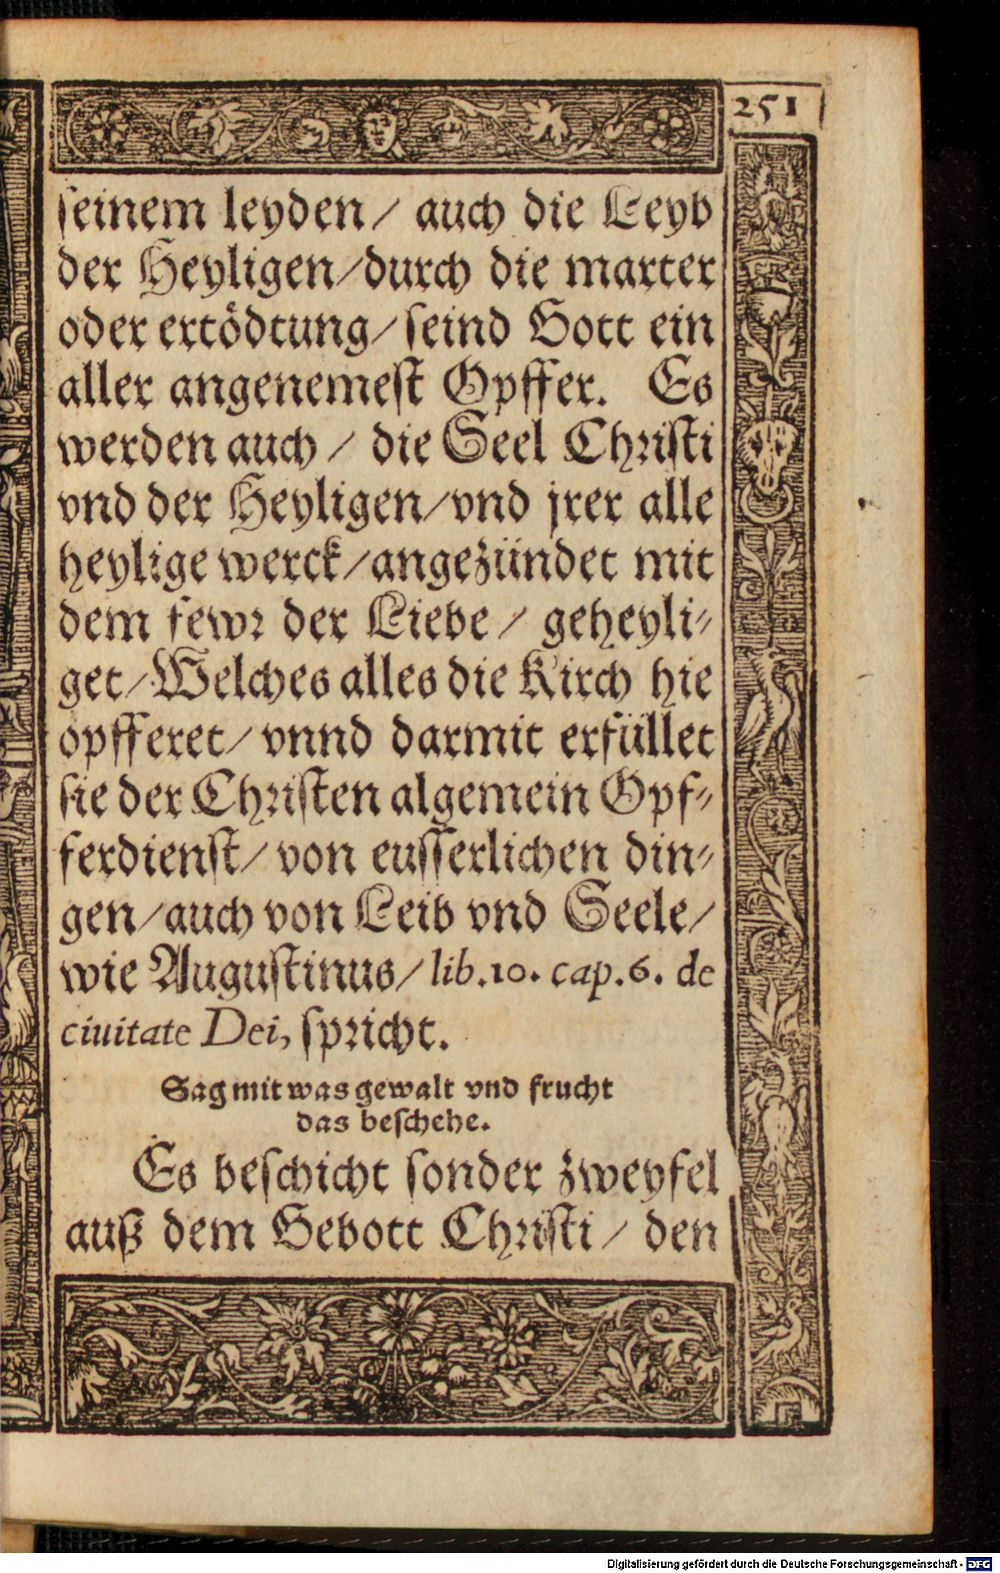 251
seinem leyden/ auch die Leyb
der Heyligen/durch die marter
oder ertödtung/seind Gott ein
aller angenemest Opffer. Es
werden auch/ die Seel Christi
vnd der Heyligen/vnd jrer alle
heylige werck/angezündet mit
dem fewr der Liebe/ geheyli-
get/Welches alles die Kirch hie
opfferet/ vnnd darmit erfüllet
sie der Christen algemein Opf-
ferdienst/ von eusserlichen din-
gen/auch von Leib vnd Seele/
wie Augustinus/ lib.10. cap.6. de
ciuitate Dei, spricht.
Sag mit was gewalt vnd frucht
das beschehe.
Es beschicht sonder zweyfel
auß dem Gebott Christi/ den
Digitalisierung gefördert durch die Deutsche Forschungsgemeinschaft - DFG